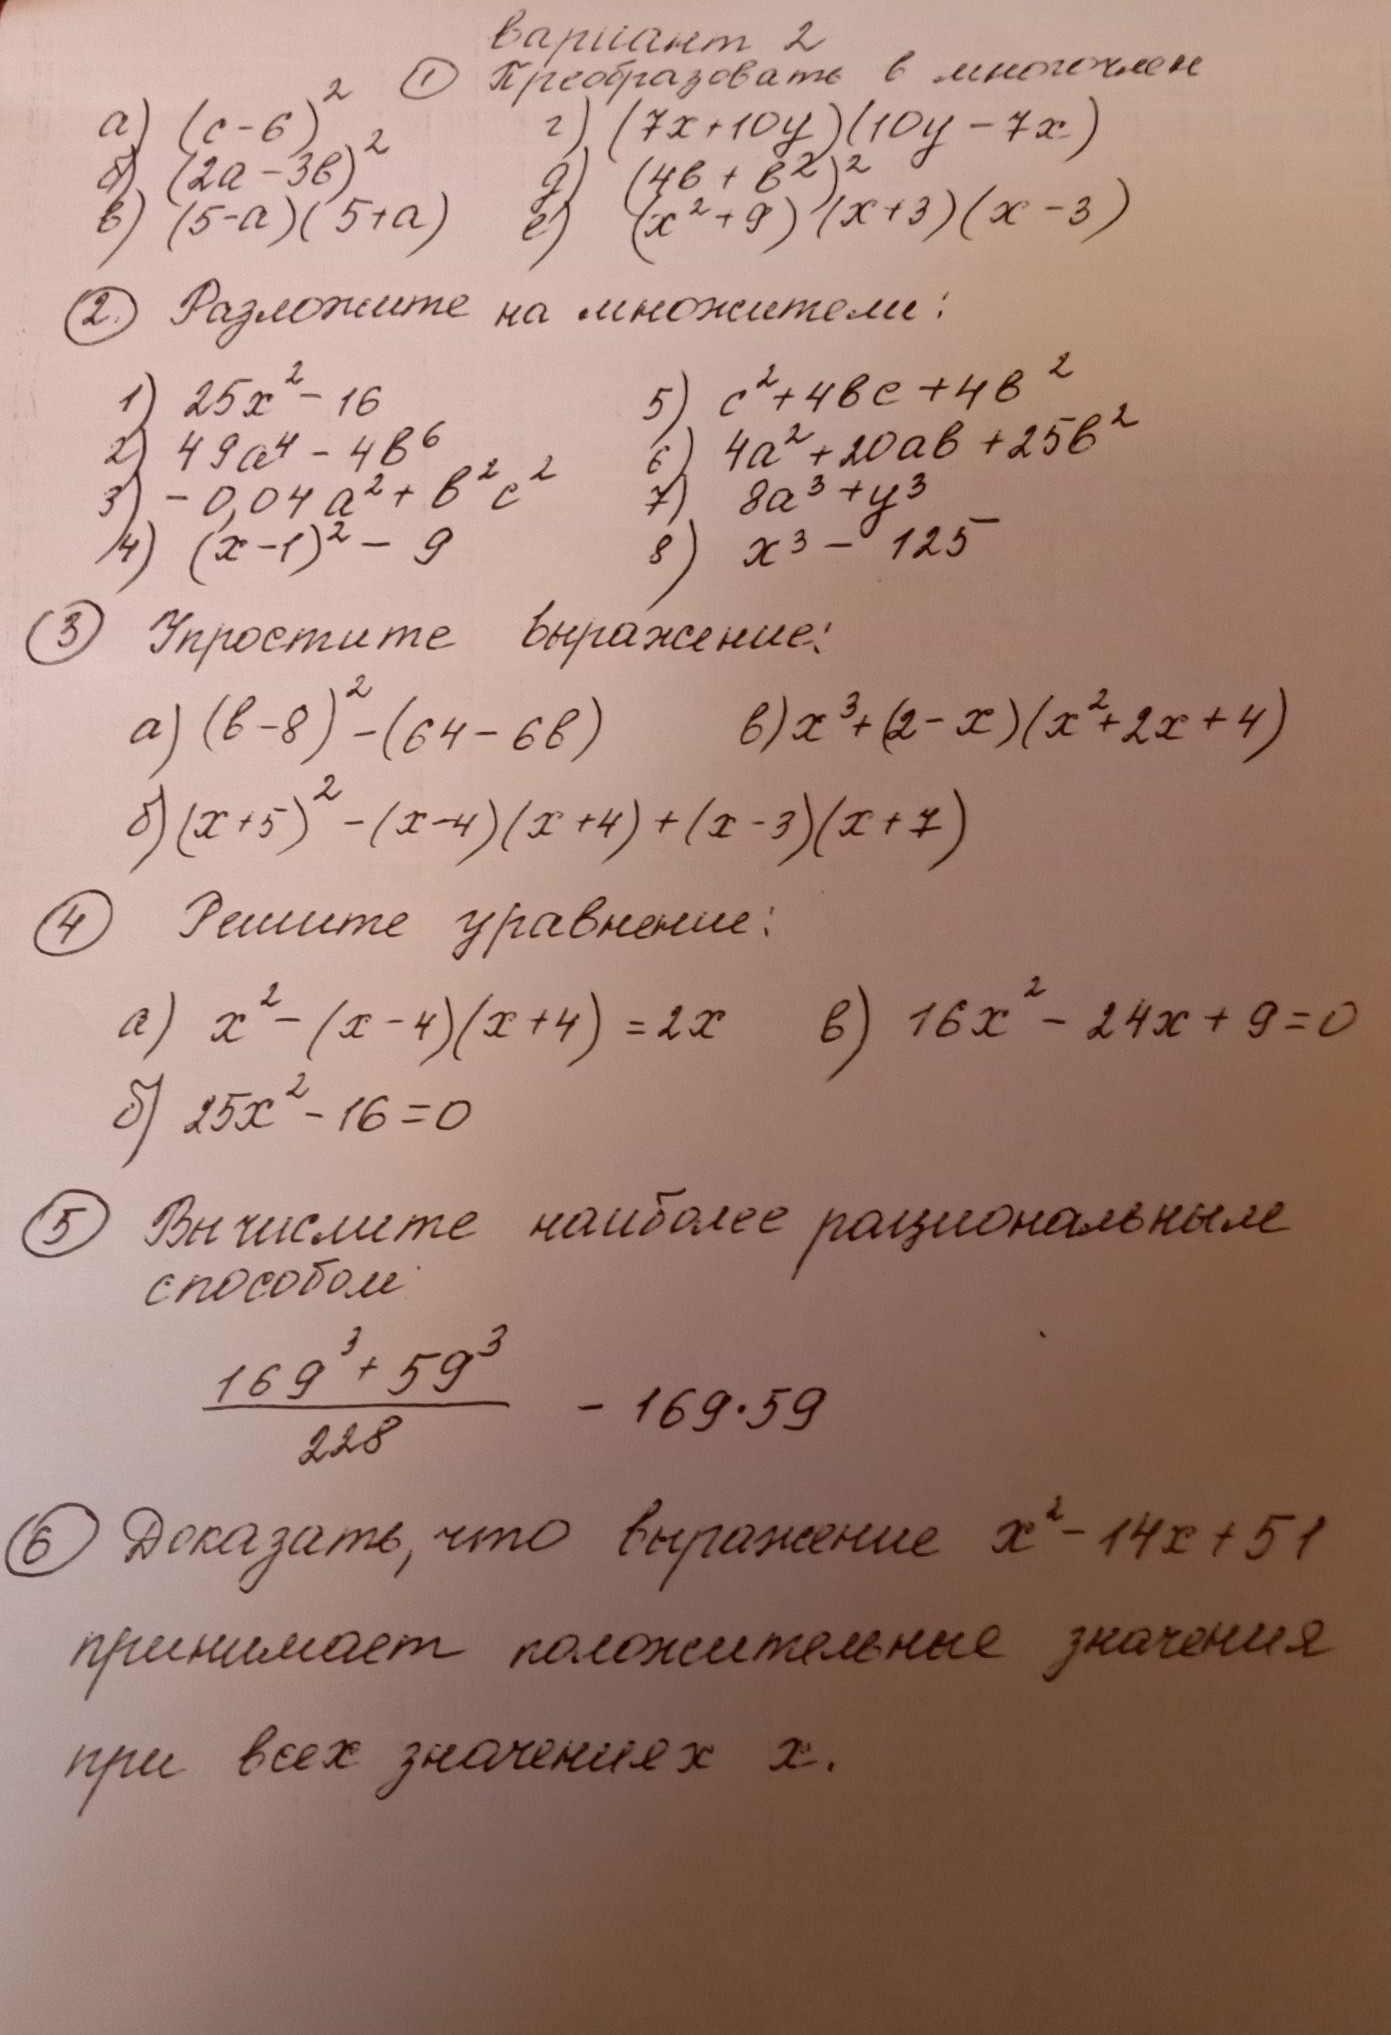 вариант 2
① Преобразовать в многочлен
а) (c-6)² г) (7x+10y)(10y-7x)
б) (2a-3b)² д) (4b+b²)²
в) (5-a)(5+a) е) (x²+9)(x+3)(x-3)
②. Разложите на множители:
1) 25x²-16 5) c²+4bc+4b²
2) 49a⁴-4b⁶ 6) 4a²+20ab+25b²
3) -0,04a²+b²c² 7) 8a³+y³
4) (x-1)²-9 8) x³-125
③ Упростите выражение:
а) (b-8)²-(64-6b) в) x³+(2-x)(x²+2x+4)
б) (x+5)²-(x-4)(x+4)+(x-3)(x+7)
④ Решите уравнение:
а) x²-(x-4)(x+4)=2x в) 16x²-24x+9=0
б) 25x²-16=0
⑤ Вычислите наиболее рациональным
способом:
169³+59³
228
- 169·59
⑥ Доказать, что выражение x²-14x+51
принимает положительные значения
при всех значениях x.